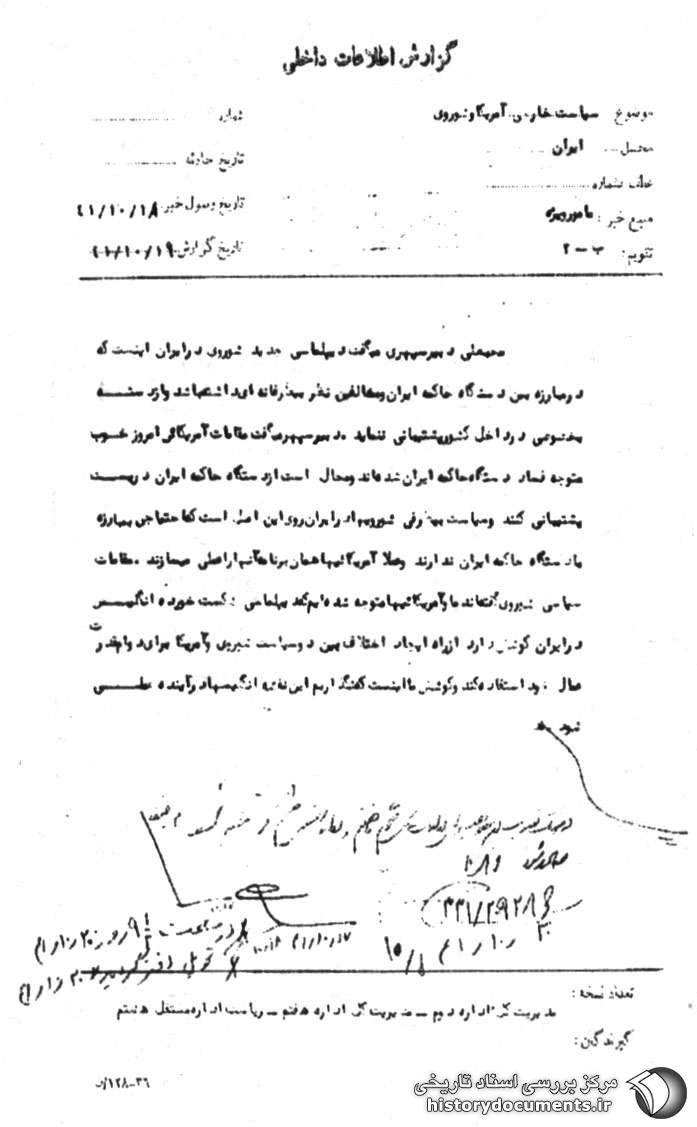 گزارش اطلاعات داخلی
موضوع سیاست خارجی آمریکا و شوروی
شماره
محل ایران
تاریخ حادثه
عطف بشماره
تاریخ وصول خبر ۴۱/۱۰/۱۸
منبع خبر : مامور ویژه
تاریخ گزارش ۴۱/۱۰/۱۹
تقویم: ب - ۲
محمدعلی دبیرسپهری میگفت دیپلماسی جدید شوروی در ایران اینست که
در مبارزه بین دستگاه حاکمه ایران و مخالفین نظر بیطرفانه ای داشته باشد و از دسته
بخصوصی در داخل کشور پشتیبانی ننماید . دبیرسپهری میگفت مقامات آمریکائی امروز خوب
متوجه فساد دستگاه حاکمه ایران شده اند و محال است از دستگاه حاکمه ایران دربست
پشتیبانی کنند و سیاست بیطرفی شورویها در ایران روی این اصل است که احتیاجی بمبارزه
با دستگاه حاکمه ایران ندارند و عملا آمریکائیها همان برنامه آنها را عملی میسازند . مقامات
سیاسی شوروی گفته اند ما و آمریکائیها متوجه شده ایم که دیپلماسی شکست خورده انگلیس
در ایران کوشش دارد از راه ایجاد اختلاف بین دو سیاست شوروی و آمریکا برای دوام قدرت
عمال خود استفاده کند و کوشش ما اینست که نگذاریم این نقشه انگلیسها در آینده عملی
شود
۳۲۱/۲۹۲۸۹
۱۵/۸
تعداد نسخه :
مدیریت کل اداره دوم ـ مدیریت کل اداره هفتم ـ ریاست اداره مستقل هشتم
گیرندگان:
۱۲۸-۳۶/د
مرکز بررسی اسناد تاریخی
historydocuments.ir